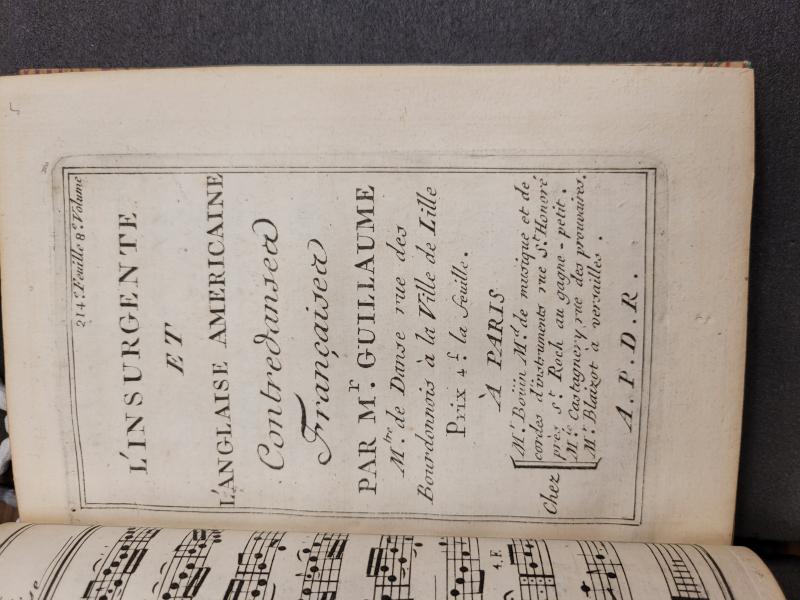 214.e Feuille 8.e Volume
L'INSURGENTE
ET
L'ANGLAISE AMERICAINE
Contredanses
Françaises
PAR Mr. GUILLAUME
Mtre. de Danse rue des
Bourdonnois à la Ville de Lille
Prix 4f. la feuille.
À PARIS
Chez
Mr. Boüin Md. de musique et de
cordes d'instruments rue St. Honoré
près St. Roch au gagne-petit.
Mlle Castagnery, rue des prouvaires.
Mr. Blaizot à versailles.
A. P. D. R.
4.F.